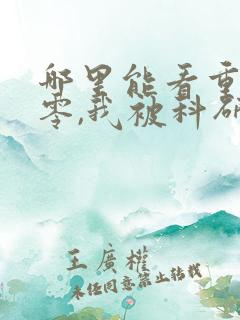 哪里能看重
零,我被科研
王廣權
未任同意禁止转载